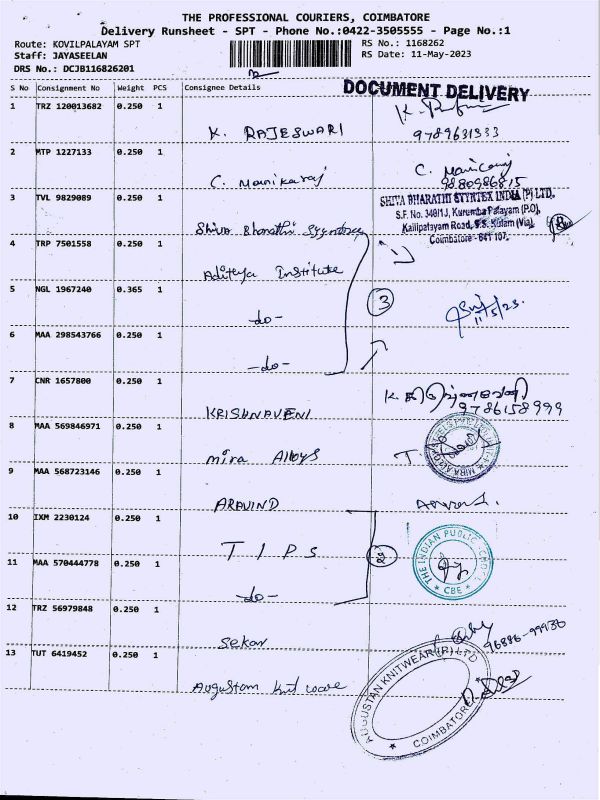 THE PROFESSIONAL COURIERS, COIMBATORE
Delivery Runsheet - SPT - Phone No.:0422-3505555 - Page No.:1
Route: KOVILPALAYAM SPT
RS No.: 1168262
Staff: JAYASEELAN
RS Date: 11-May-2023
DRS No.: DCJB116826201
S No Consignment No Weight PCS Consignee Details
DOCUMENT DELIVERY
1 TRZ 120013682 0.250 1
K. RAJESWARI 9789631333
2 MTP 1227133 0.250 1
C. Manikaraj
9880986815
3 TVL 9829089 0.250 1
SHIVA BHARATHI SYNTEX INDIA (P) LTD,
S.F. No. 340/1J, Kurumba Palayam (P.O),
Kalipatayam Road, S.S. Kulam (Via),
Coimbatore - 641 107.
Shiva Bharathi
4 TRP 7501558 0.250 1
Aditya Institute
5 NGL 1967240 0.365 1
3
-do-
11/5/23.
6 MAA 298543766 0.250 1
-do-
7 CNR 1657800 0.250 1
KRISHNAVENI
9786158999
8 MAA 569846971 0.250 1
Mira Alloys
9 MAA 568723146 0.250 1
ARAVIND
10 IXM 2230124 0.250 1
T I P S
THE INDIAN PUBLIC SCHOOL
★ CBE ★
11 MAA 570444778 0.250 1
-do-
12 TRZ 56979848 0.250 1
Sekar
13 TUT 6419452 0.250 1
Augustam Knit wear
AUGUSTAN KNITWEAR (P) LTD
COIMBATORE